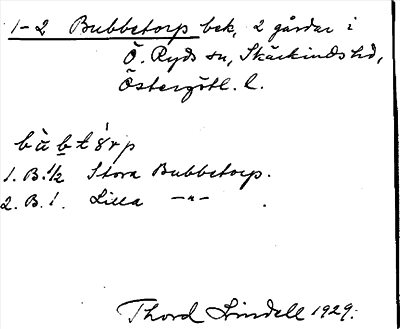 1-2 Bubbetorp bek, 2 gårdar i
Ö. Ryds sn, Skärkinds hd,
Östergötl. l.
bùbtórp
1. B. 1/2 Stora Bubbetorp.
2. B. 1. Lilla -"- .
Thord Lindell 1929.